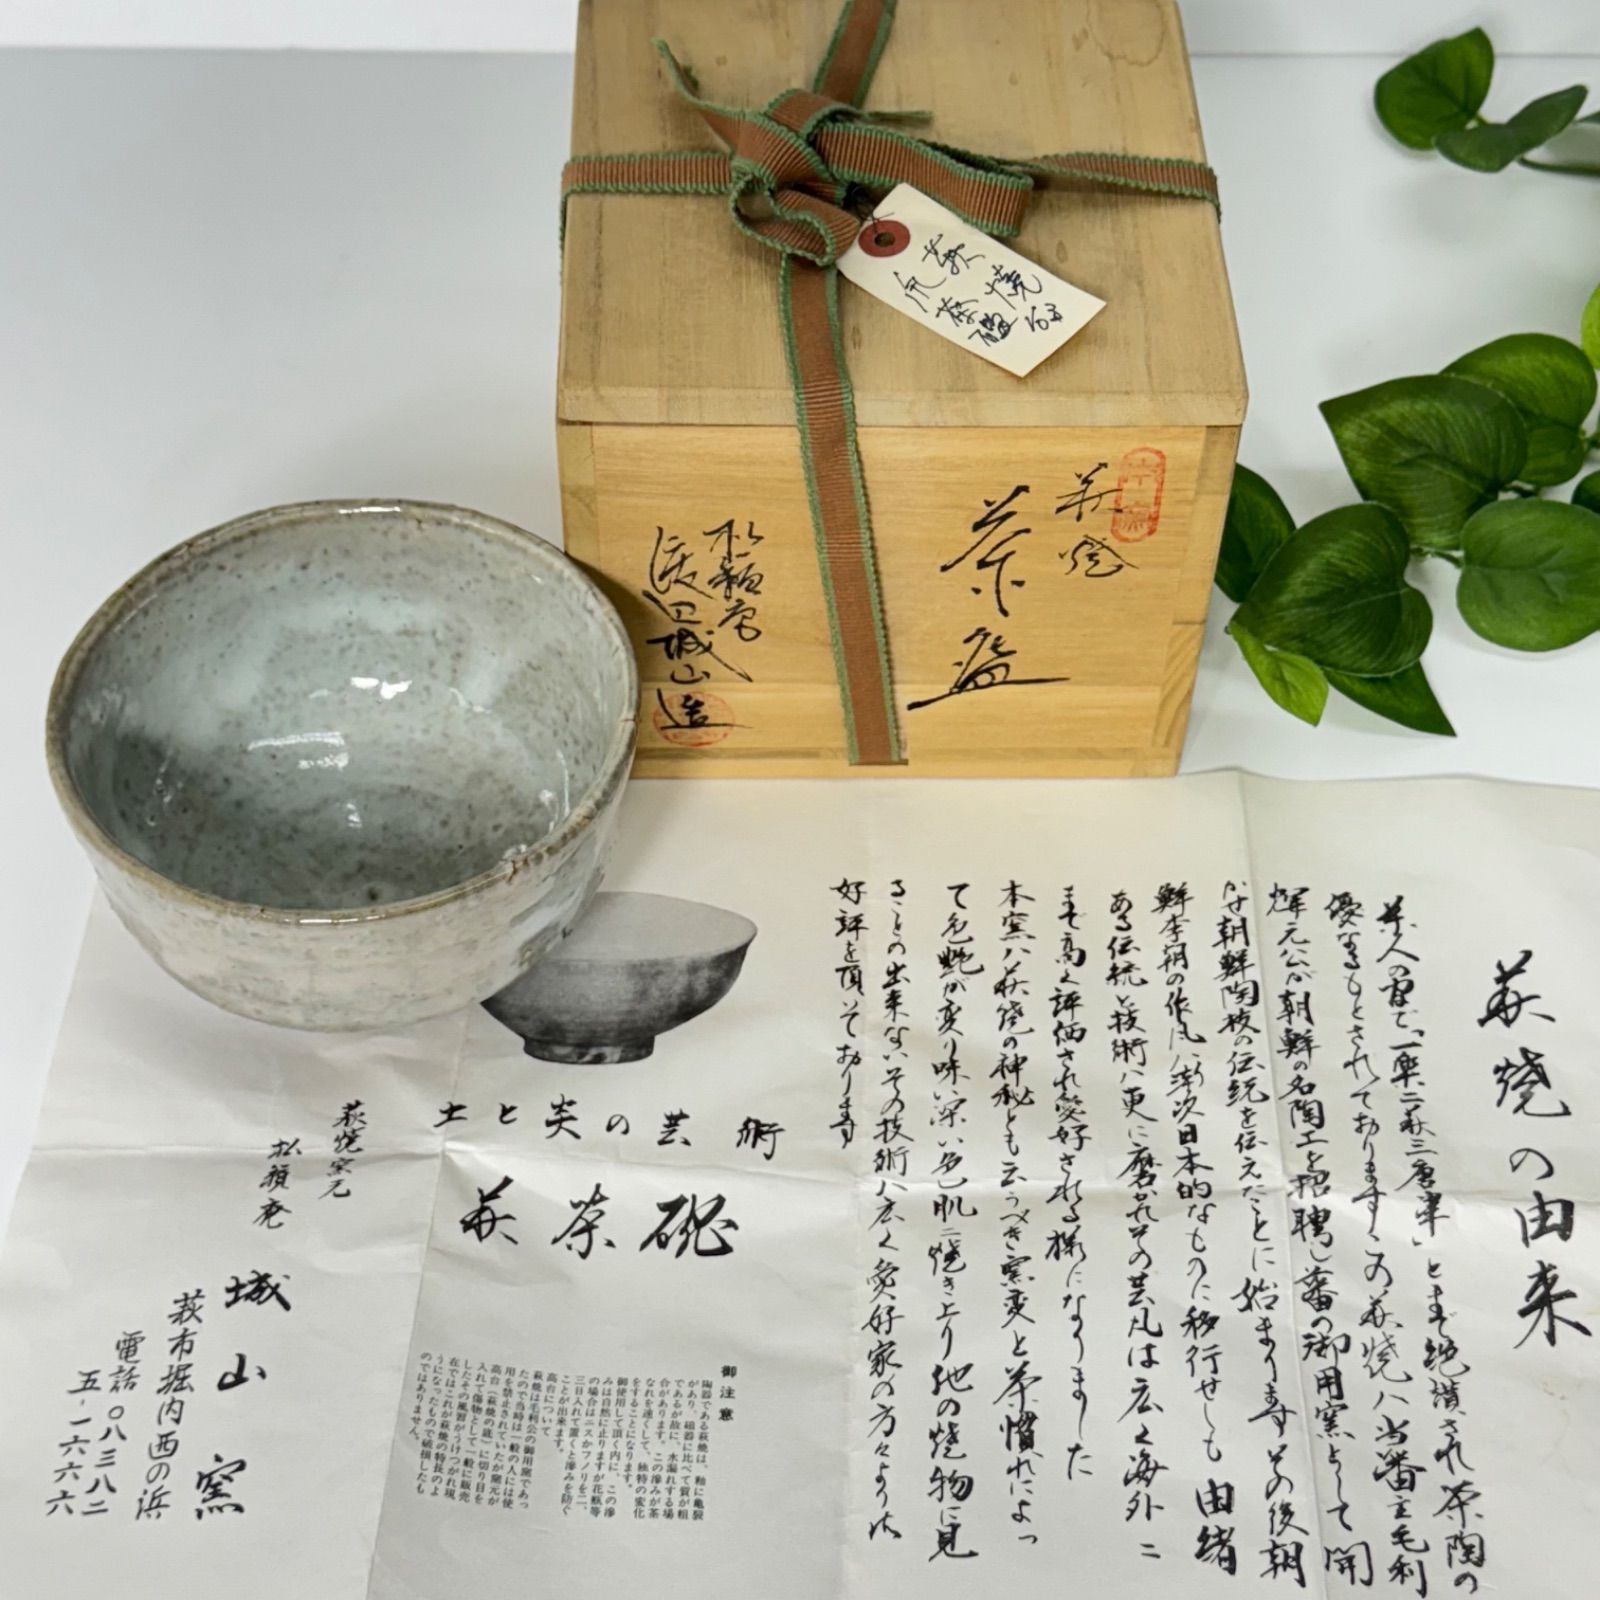 萩焼
茶碗
萩焼
茶盌
松韻庵
渡辺城山造
萩焼の由来
茶人の間で「一楽二萩三唐津」とまで絶讃され茶陶の
優なるものとされております この萩焼ハ当藩主毛利
輝元公が朝鮮の名陶工を招聘し藩の御用窯として開
かせ朝鮮陶技の伝統を伝えたことに始まります その後朝
鮮李朝の作風ハ漸次日本的なものに移行せしも由緒
ある伝統と技術ハ更に磨かれその芸風は広く海外ニ
まで高く評価され愛好される様になりました
本窯ハ萩焼の神秘とも云うべき窯変と茶慣れによっ
て色艶が変り味い深い色肌ニ焼き上り他の焼物に見
ることの出来ないその技術ハ広く愛好家の方々より御
好評を頂いております
土と炎の芸術
萩茶碗
御注意
陶器である萩焼は、釉に亀裂
があり、磁器に比べて質が粗
であるが故に、水漏れする場
合があります。この滲みが茶
なれを速くして、独特の変化
をすることになります。
御使用して頂く内に、この滲
みは自然に止りますが花瓶等
の場合はニスかフノリを二、
三日入れて置くと滲みを防ぐ
ことが出来ます。
高台について
萩焼は毛利公の御用窯であっ
たので当時は一般の人には使
用を禁止されていたが窯元が
高台(萩焼の底)に切り目を
入れて傷物として一般に販売
したその風習がうけつがれ現
在ではこれが萩焼の特長のよ
うになったもので破損したも
のではありません。
萩焼窯元
松韻庵
城山窯
萩市堀内西の浜
電話〇八三八二
五-一六六六